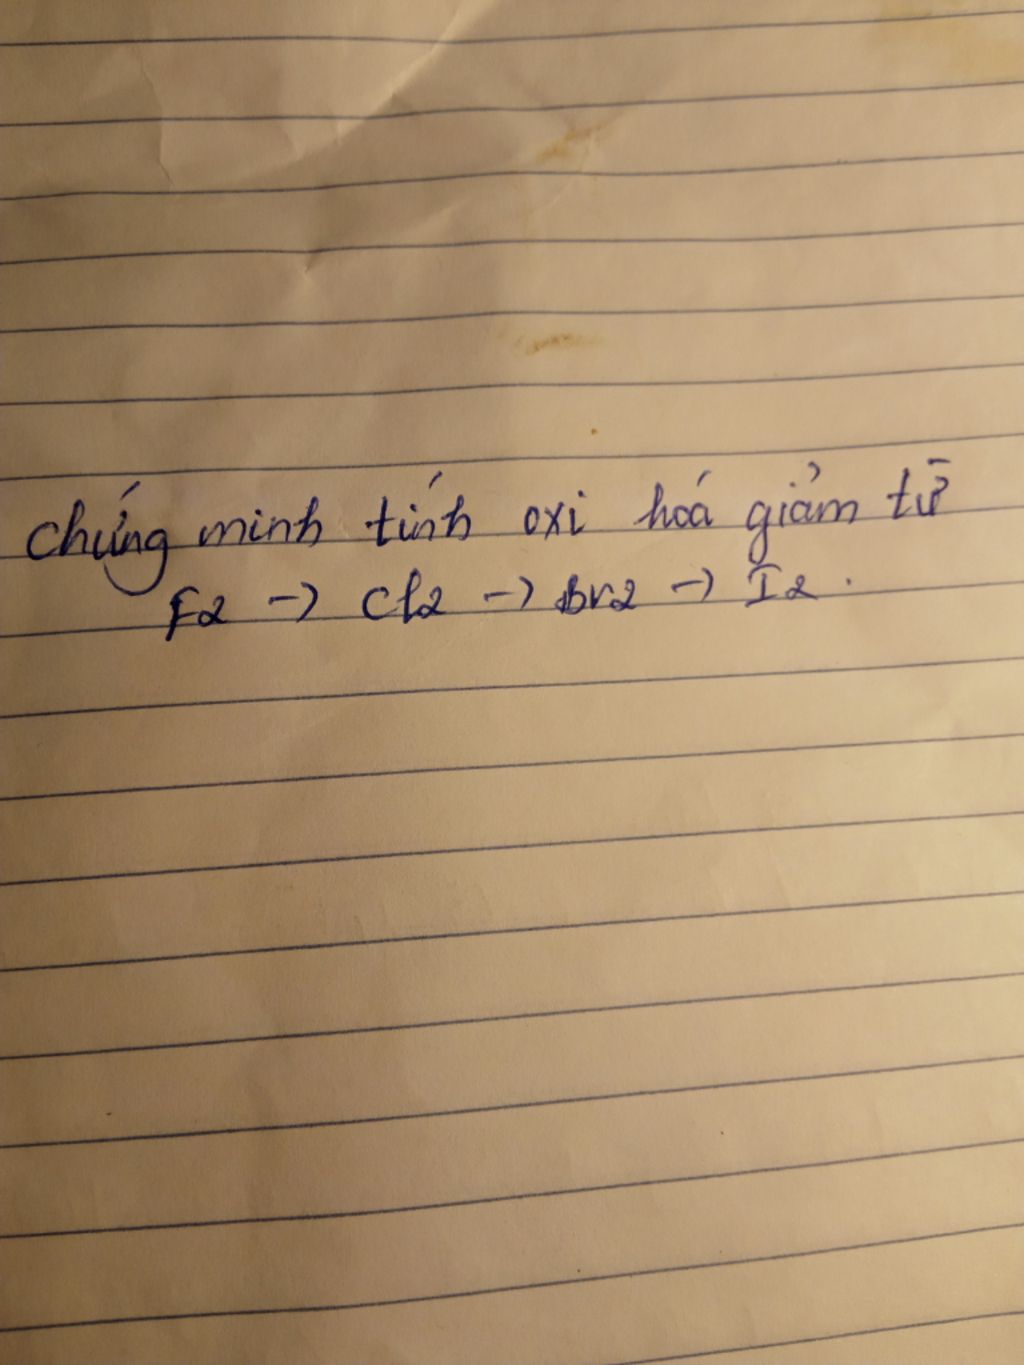 chứng minh tính oxi hoá giảm từ
F2 -> Cl2 -> Br2 -> I2.